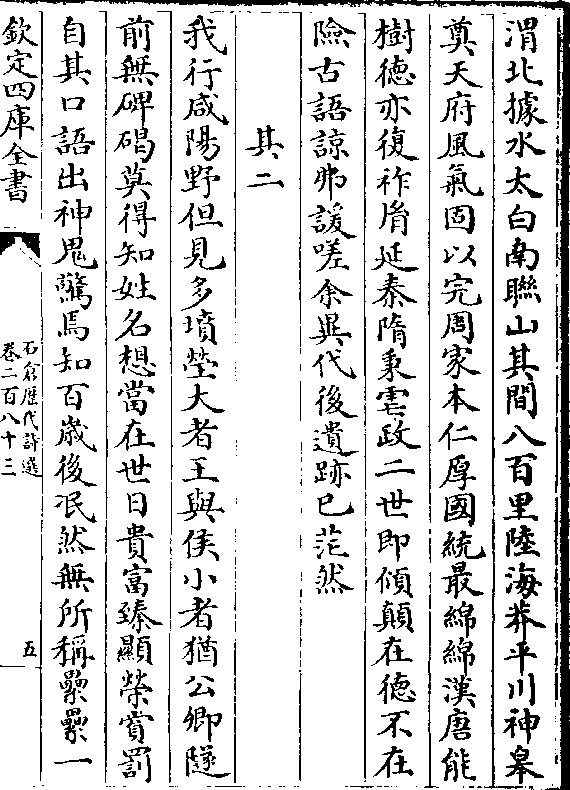 渭北據水太白南聯山其間八百里陸海莽平川神皋
奠天府風氣固以完周家本仁厚國統最綿綿漢唐能
樹德亦復祚胤延秦隋秉虐政二世即傾顛在德不在
險古語諒弗諼嗟余異代後遺跡已茫然
其二
我行咸陽野但見多墳塋大者王與侯小者猶公卿隧
前無碑碣莫得知姓名想當在世日貴富臻顯榮賞罰
自其口語出神鬼驚焉知百歲後泯然無所稱纍纍一
欽定四庫全書
石倉歷代詩選
卷二百八十三
五